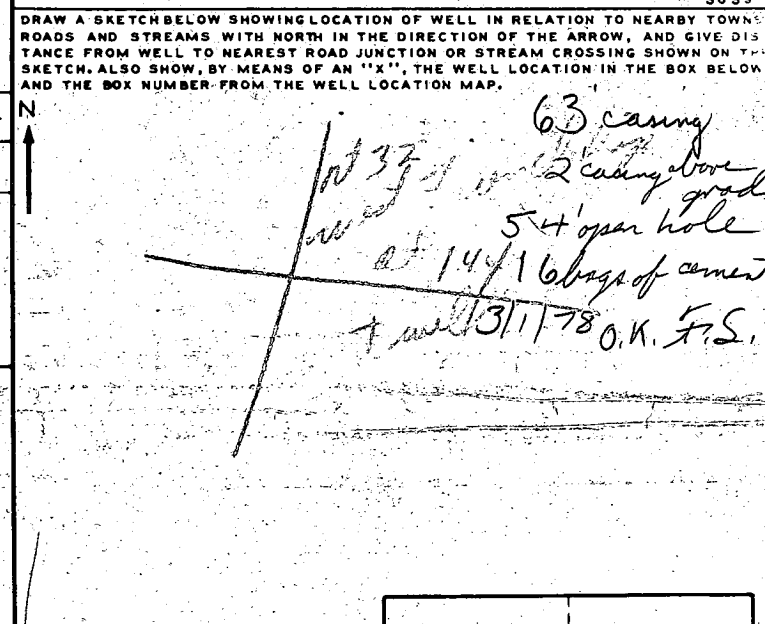 DRAW A SKETCH BELOW SHOWING LOCATION OF WELL IN RELATION TO NEARBY TOWNS
ROADS AND STREAMS WITH NORTH IN THE DIRECTION OF THE ARROW, AND GIVE DIS
TANCE FROM WELL TO NEAREST ROAD JUNCTION OR STREAM CROSSING SHOWN ON THE
SKETCH. ALSO SHOW, BY MEANS OF AN "X", THE WELL LOCATION IN THE BOX BELOW
AND THE BOX NUMBER FROM THE WELL LOCATION MAP.
N
63' casing
2' casing above
grade
54' open hole
at 144
16 bags of cement
3/1/78 O.K. F.S.